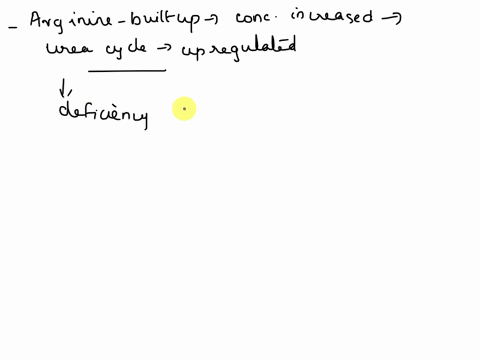 - Arginine-built up → conc. increased →
urea cycle → upregulated
↓
deficiency